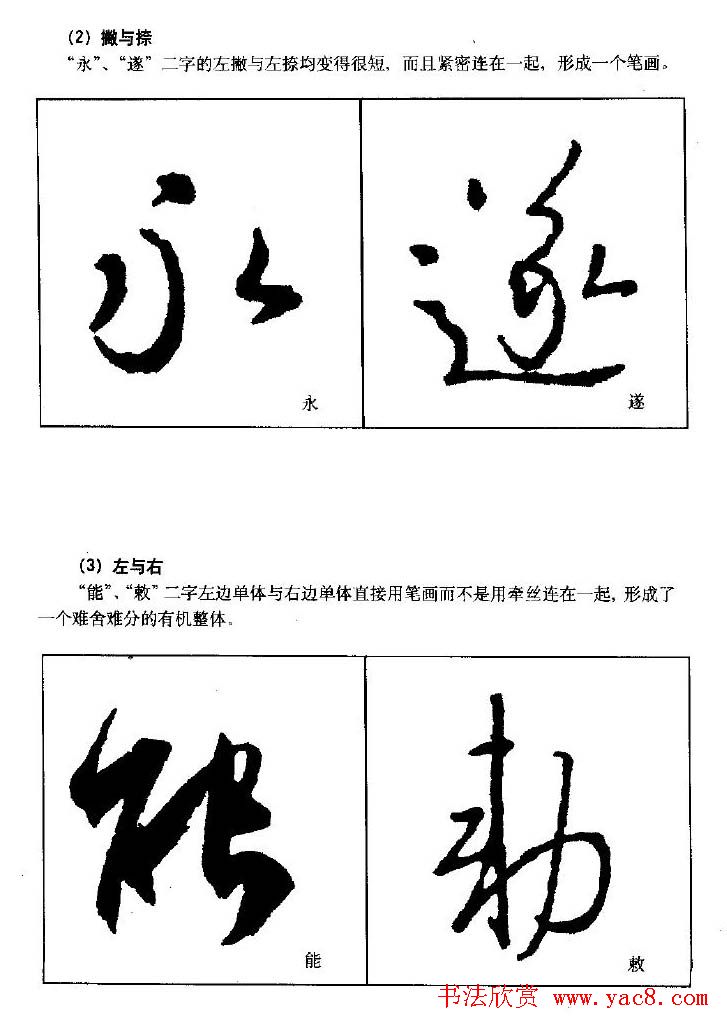 （2）撇与捺
“永”、“遂”二字的左撇与左捺均变得很短，而且紧密连在一起，形成一个笔画。
永 遂
永 遂
（3）左与右
“能”、“敕”二字左边单体与右边单体直接用笔画而不是用牵丝连在一起，形成了
一个难舍难分的有机整体。
能 勅
能 敕
书法欣赏 www.yac8.com